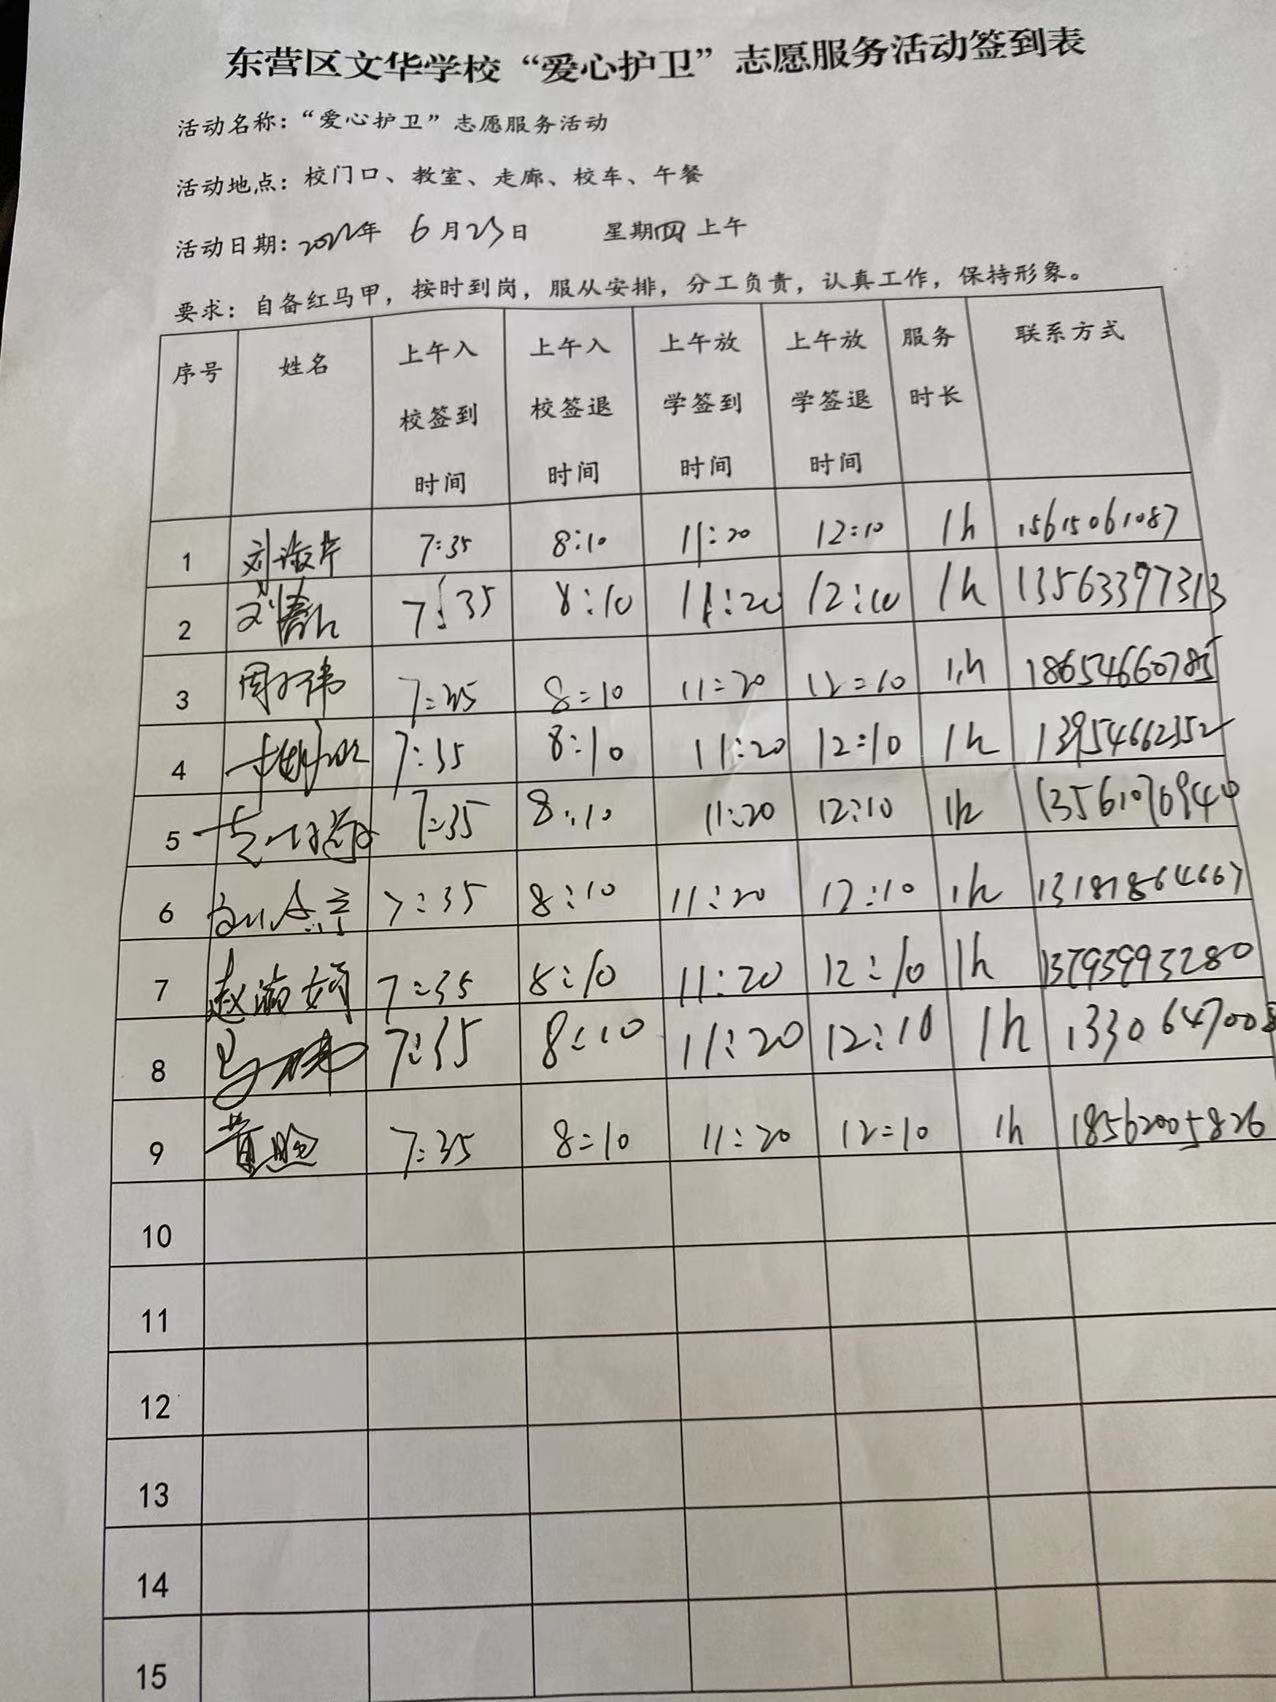 东营区文华学校“爱心护卫”志愿服务活动签到表
活动名称：“爱心护卫”志愿服务活动
活动地点：校门口、教室、走廊、校车、午餐
活动日期：2022年 6月23日 星期四 上午
要求：自备红马甲，按时到岗，服从安排，分工负责，认真工作，保持形象。
序号 姓名 上午入校签到时间 上午入校签退时间 上午放学签到时间 上午放学签退时间 服务时长 联系方式
1 7:35 8:10 11:20 12:10 1h 15615061087
2 7:35 8:10 11:20 12:10 1h 13563397313
3 7:35 8:10 11:20 12:10 1h 18654660785
4 7:35 8:10 11:20 12:10 1h 13954662352
5 7:35 8:10 11:20 12:10 1h 13561076940
6 7:35 8:10 11:20 12:10 1h 13181864667
7 赵海娇 7:35 8:10 11:20 12:10 1h 13793993280
8 马伟 7:35 8:10 11:20 12:10 1h 1330647008
9 7:35 8:10 11:20 12:10 1h 18562005826
10
11
12
13
14
15